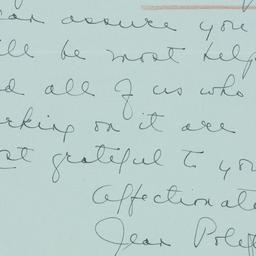 can assure you
ill be most help
d all of us who
rking on it are
st grateful to you
Affectionate
Jean